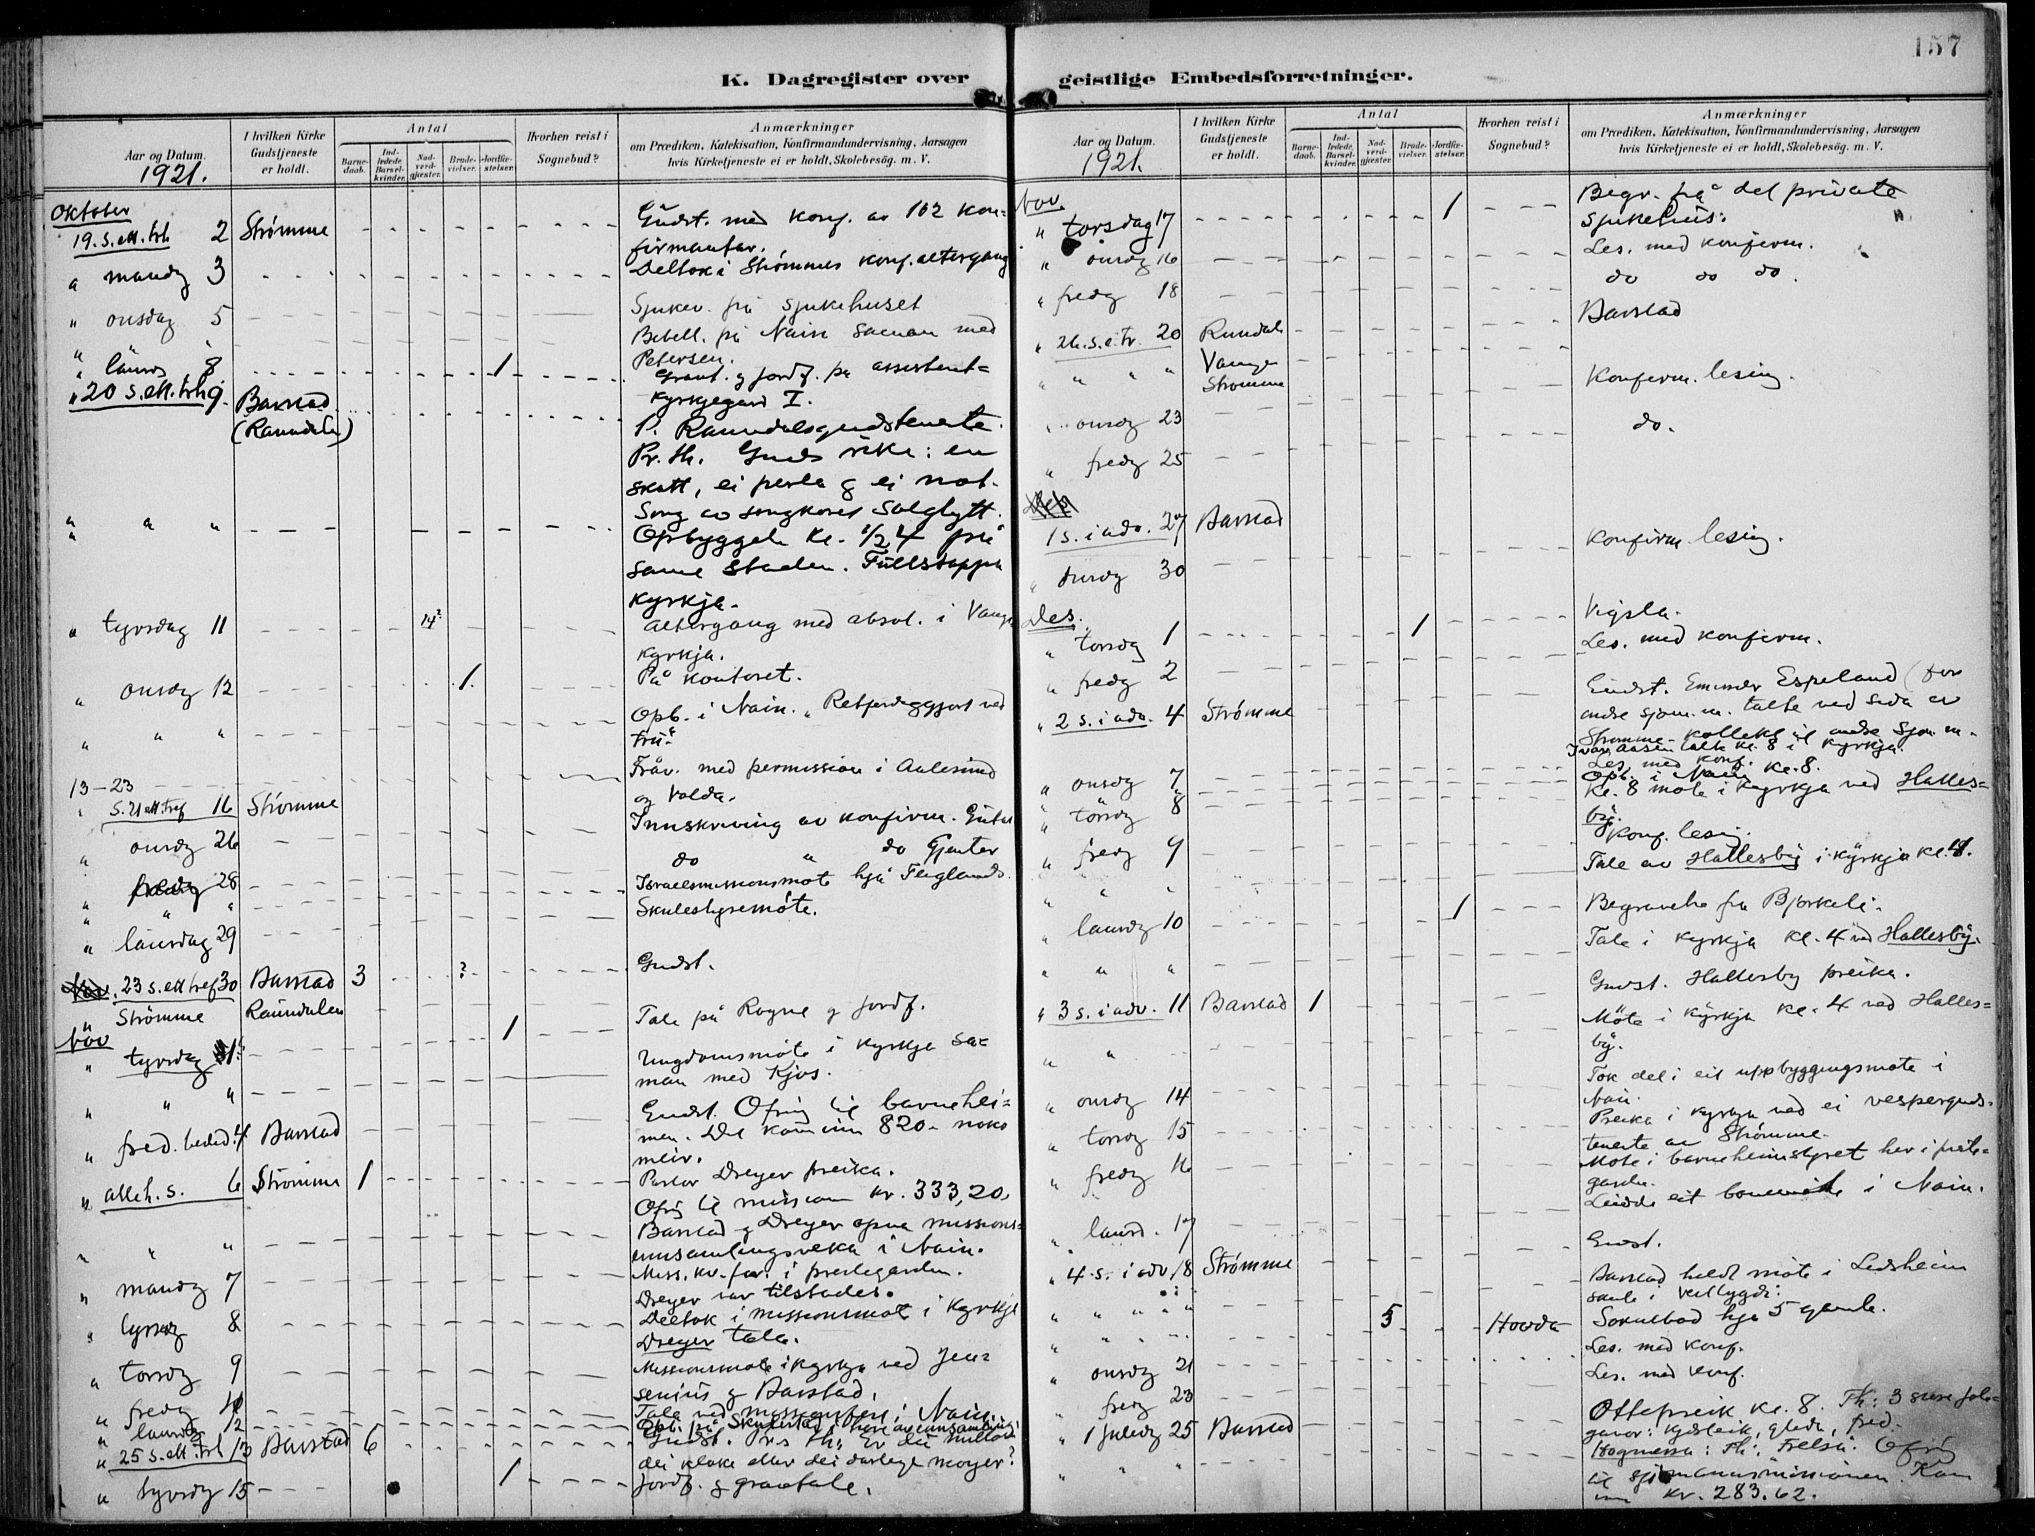 157
K. Dagregister over
geistlige Embedsforretninger.
Aar og Datum.
1921.
I hvilken Kirke Gudstjeneste er holdt.
Antal
Barne-daab.
Ind-ledede Barsel-kvinder.
Nad-verd-gjester.
Brude-vielser.
Jordfæ-stelser.
Hvorhen reist i Sognebud?
Anmærkninger
om Prædiken, Katekisation, Konfirmandundervisning, Aarsagen
hvis Kirketjeneste ei er holdt, Skolebesøg. m. V.
Oktober
19. s. ett. trh 2 Strømme Gudst. med konf. av 102 kon-
firmantar.
" mandg 3 Deltok i Strømmes konf. altergang
" onsdag 5 Sjukev. på sjukehuset
Bibell. på Nain saman med
Petersen.
" laurd 8 1 Gravt. og jordf. på assistent-
kyrkjegard I.
" 20 s. ett. trh 9. Barstad
(Raundalen) P. Raundalsgudsteneste.
Pr. th. Guds rike: en
skatt, ei perla og ei not.
Song av songkoret Solglytt.
" " " Opbyggels kl. 1/2 4 på
same staden. Fullstappa
kyrkja.
" tyrsdag 11 14 Altergang med absol. i Vangs
kyrkja.
" onsdg 12 1. På kontoret.
" " " Opb. i Nain. "Retferdiggjort ved
tru"
13-23 Fråv. med permission i Aalesund
og Volda.
" S. 21 ett. tref 16 Strømme
" onsdg 26 Innskriving av konfirm. Gutar
" fredg 28 do " do Gjenter
" " " Israelsmissionsmøte hjå Fuglands
" laurdag 29 Skulestyremøte.
23 s. ett tref 30 Barstad 3 ? Gudst.
" Strømme Raundalen
Nov
" tyrsdag 1 1 Tale på Rogne og jordf.
" " " Ungdomsmøte i kyrkja sa-
man med Kjos.
" fred. beded. 4 Barstad Gudst. Ofring til barnehei-
men. Det kom inn 820.- noko
meir.
" alleh. s. 6 Strømme 1 Pastor Dreyer preika.
Ofring til misjonen kr. 333,20
" " " Barstad og Dreyer opna missions-
innsamlingsveka i Nain.
" mandg 7 Miss. kv. for. i prestegarden.
Dreyer var tilstades.
" tyrsdg 8 Deltok i missionsmøte i kyrkja
Dreyer tala.
" torsdg 9 Missionsmøte i kyrkja ved Jen-
senius og Barstad.
" fredg 11 Tale ved missionsfest i Nain.
" laurdg 12
" 25 s. ett. trh 13 Barstad 6 Gudst. Pr.s th: Er du millom
dei kloke eller dei darlege moyar?
" tyrsdg 15 1 Jordf. og gravtale.
Aar og Datum.
1921.
I hvilken Kirke Gudstjeneste er holdt.
Antal
Barne-daab.
Ind-ledede Barsel-kvinder.
Nad-verd-gjester.
Brude-vielser.
Jordfæ-stelser.
Hvorhen reist i Sognebud?
Anmærkninger
om Prædiken, Katekisation, Konfirmandundervisning, Aarsagen
hvis Kirketjeneste ei er holdt, Skolebesøg. m. V.
Nov.
" torsdag 17 1 Begr. frå det private
sjukehus.
" onsdg 16 Les. med konfirm.
" fredg 18 do do do.
" 26. s. e. tr. 20 Rundal Barstad
" " " " Vangen
Strømme
" onsdg 23 Konfirm. lesing.
" fredg 25 do.
1 s. i adv. 27 Barstad
" onsdg 30 Konfirm lesing.
Des.
" torsdg 1 1 Vigsla.
" fredg 2 Les. med konfirm.
" 2 s. i adv. 4 Strømme Gudst. Espeland for
indre sjøm. m. talte ved sida av
Strømme - kollekt til indre sjøm. m.
Ivar Aasen talte kl. 8 i kyrkja.
" onsdg 7 Les. med konf.
Opb. i Nain kl. 8.
" torsdg 8 Kl. 8 møte i kyrkja ved Halles-
by.
" fredg 9 Konf. lesing.
" " Tale av Hallesby i kyrkja kl. 4.
" laurdg 10 1 Begravelse fra Bjørkeli.
" " " Tale i kyrkja kl. 4 ved Hallesby.
" 3 s. i adv. 11 Barstad 1 Gudst. Hallesby preika.
" " Møte i kyrkja kl. 4 ved Halles-
by.
" onsdg 14 Tok del i eit uppbyggingsmøte i
Nain.
" torsdg 15 Preika i kyrkja ved ei vesperguds-
teneste av Strømme.
" fredg 16 Møte i barneheimstyret her i preste-
garden.
" laurd. 17 Leidde eit bønemøte i Nain.
" 4. s. i adv. 18 Strømme Gudst.
" " " " Barstad heldt møte i Ledsheim
skule i Vestbygdi.
" " " 5 Hovda Soknebod hjå 5 gamle.
" onsdg 21 Les. med konf.
" fredg 23 Les. med konf.
" 1 juledg 25 Barstad Ottepreik kl. 8. Th: 3 store jole-
gaver: kjærleik, glede, fred.
" " " Høgmessa: Th: Frelsa. Ofring
til sjømannsmisionen. Kom
inn kr. 283.62.